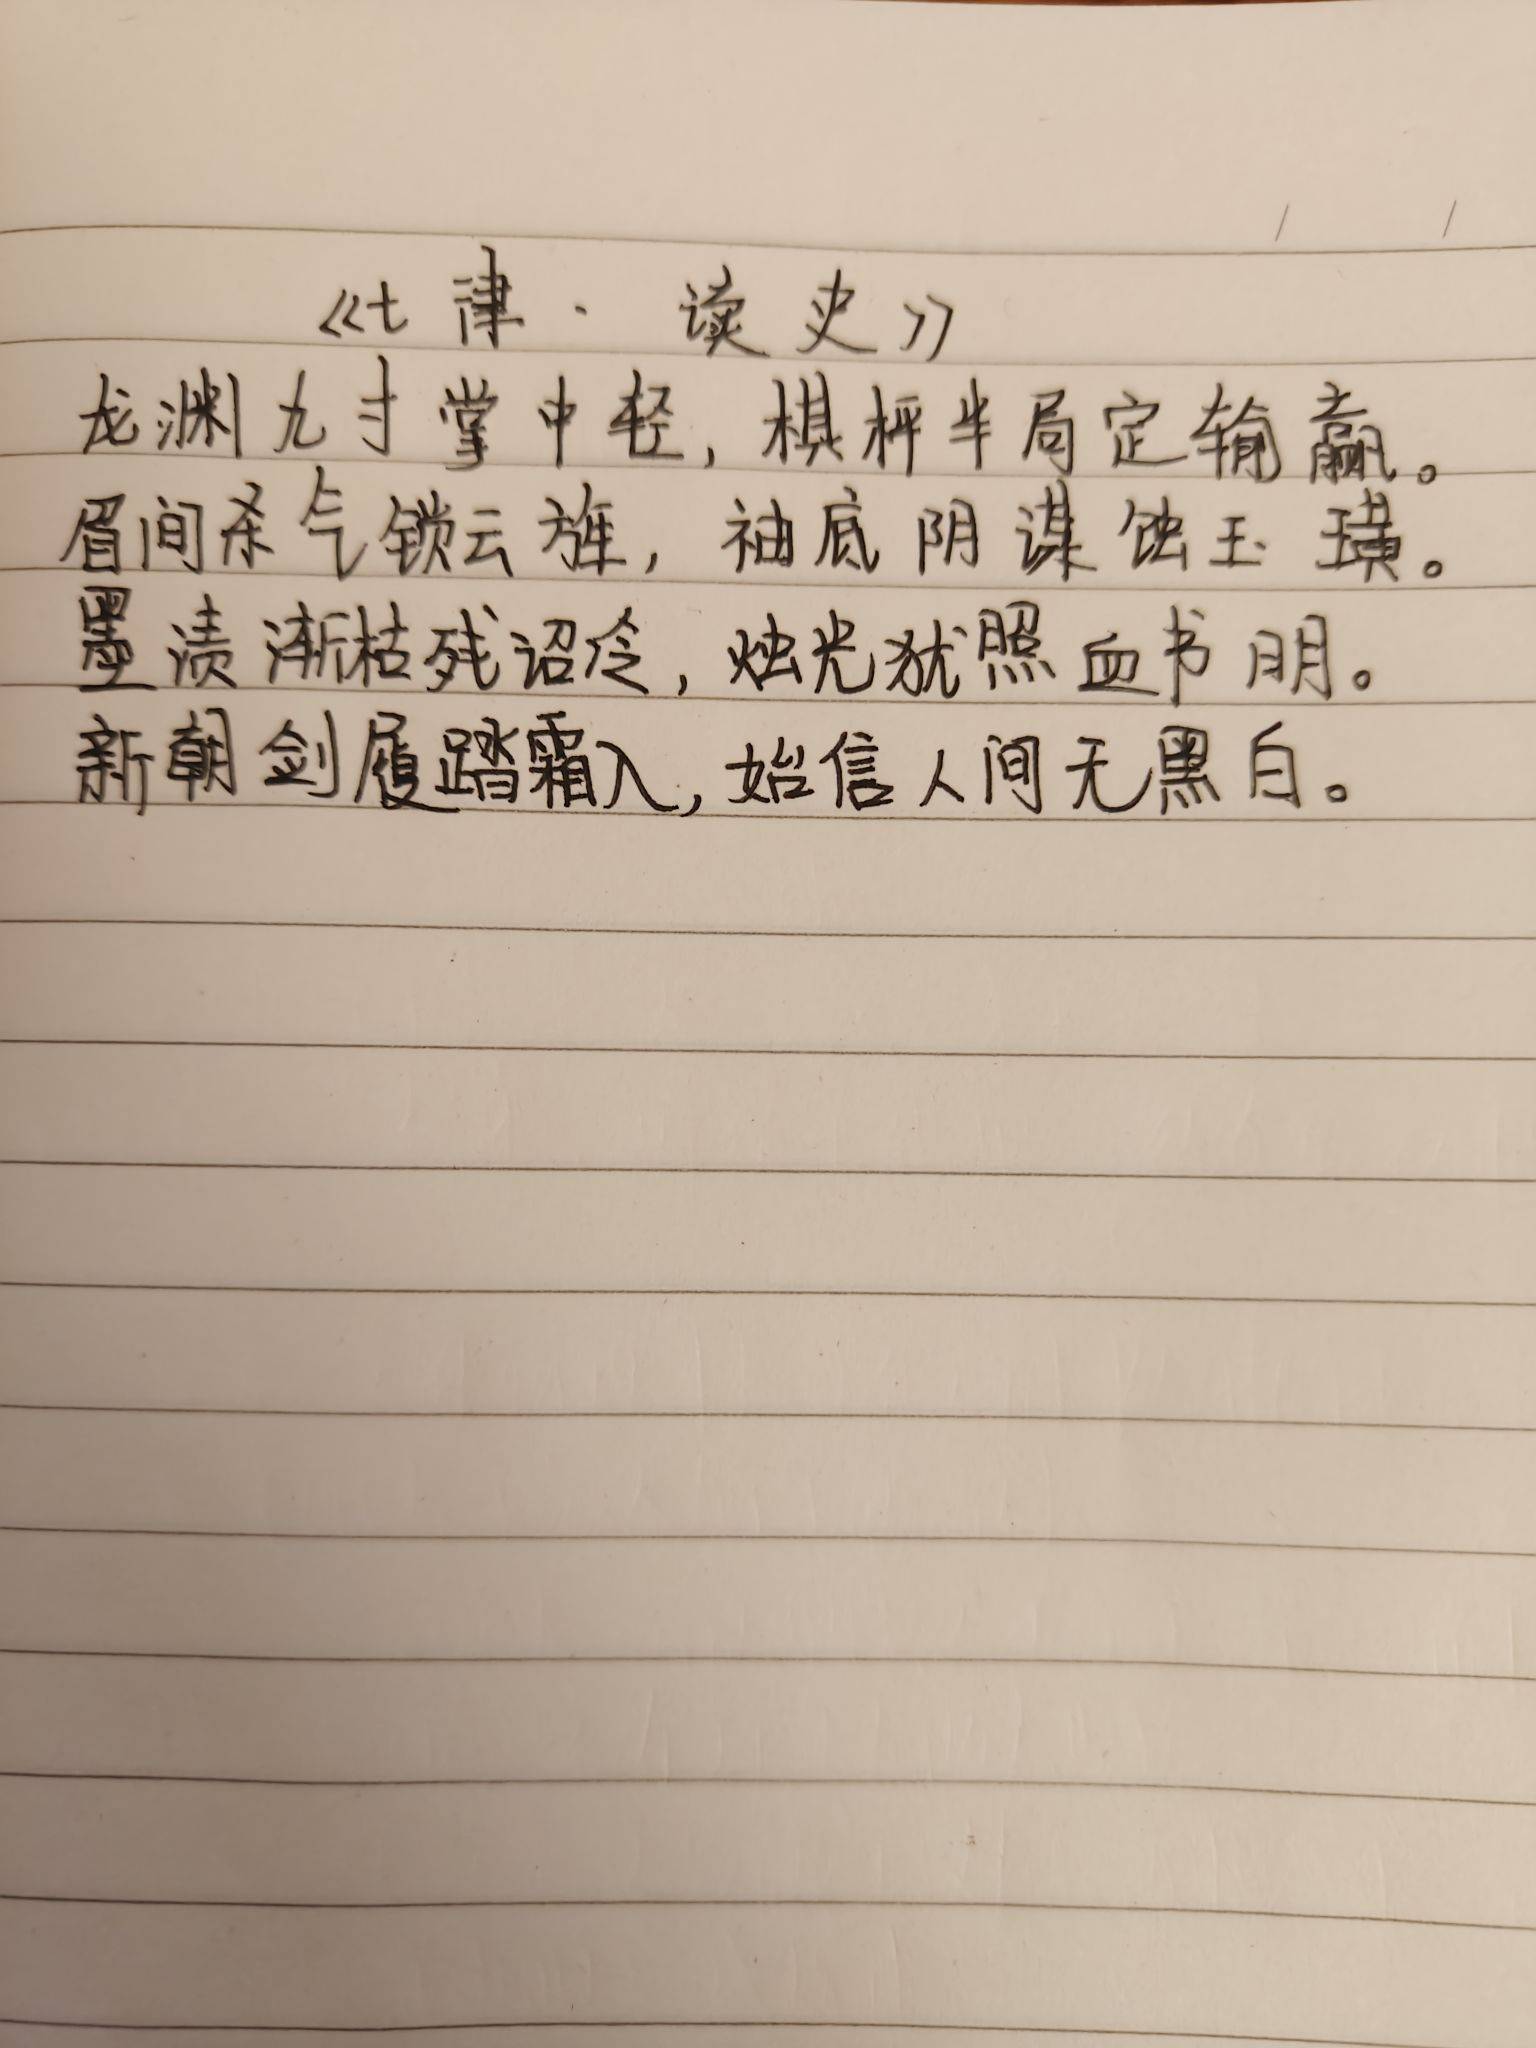 《七律·读史》
龙渊九寸掌中轻，棋枰半局定输赢。
眉间杀气锁云旌，袖底阴谋蚀玉璜。
墨渍渐枯残诏冷，烛光犹照血书明。
新朝剑履踏霜入，始信人间无黑白。